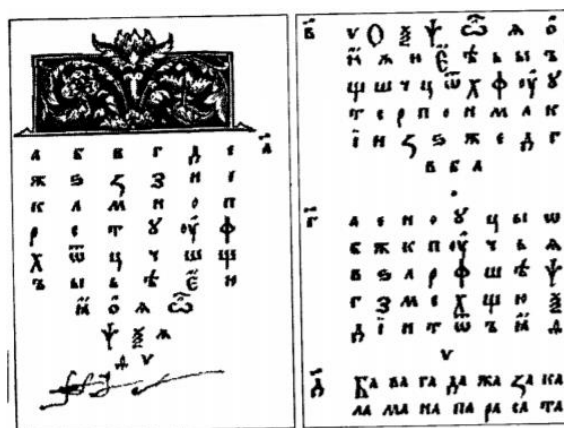 а б в г д е а҃
ж ѕ ꙁ з и і
к л м н о п
р с т ꙋ оу ф
х ѿ ц ч ш щ
ъ ы ь ѣ є ю
ꙗ о ѧ ѽ
ѱ ѯ ѫ
ѵ
в҃ ѵ ѳ ѯ ѱ ѽ ѧ о
ꙗ ѫ ю є ѣ ь ы ъ
щ ш ч ц ѿ х ф оу ꙋ
т с р п о н м л к
і и ꙁ ѕ ж е д г
в б а
г҃ а е и о ꙋ ц ы ѡ
б ж к п оу ч ь ѧ
в ѕ л р ф ш ѣ ѱ
г з м с х щ ю ѯ
д і н т ѿ ъ ꙗ ѳ
ѵ
д҃ Ба ва га да жа ꙁа ка
ла ма на па ра са та